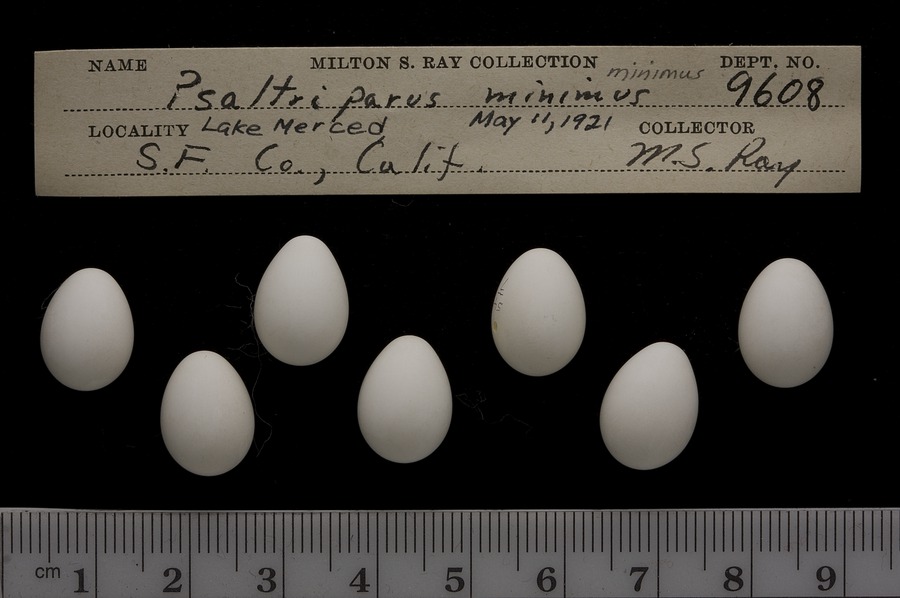 NAME MILTON S. RAY COLLECTION minimus DEPT. NO.
Psaltriparus minimus 9608
LOCALITY Lake Merced May 11, 1921 COLLECTOR
S.F. Co., Calif. M.S. Ray
cm 1 2 3 4 5 6 7 8 9